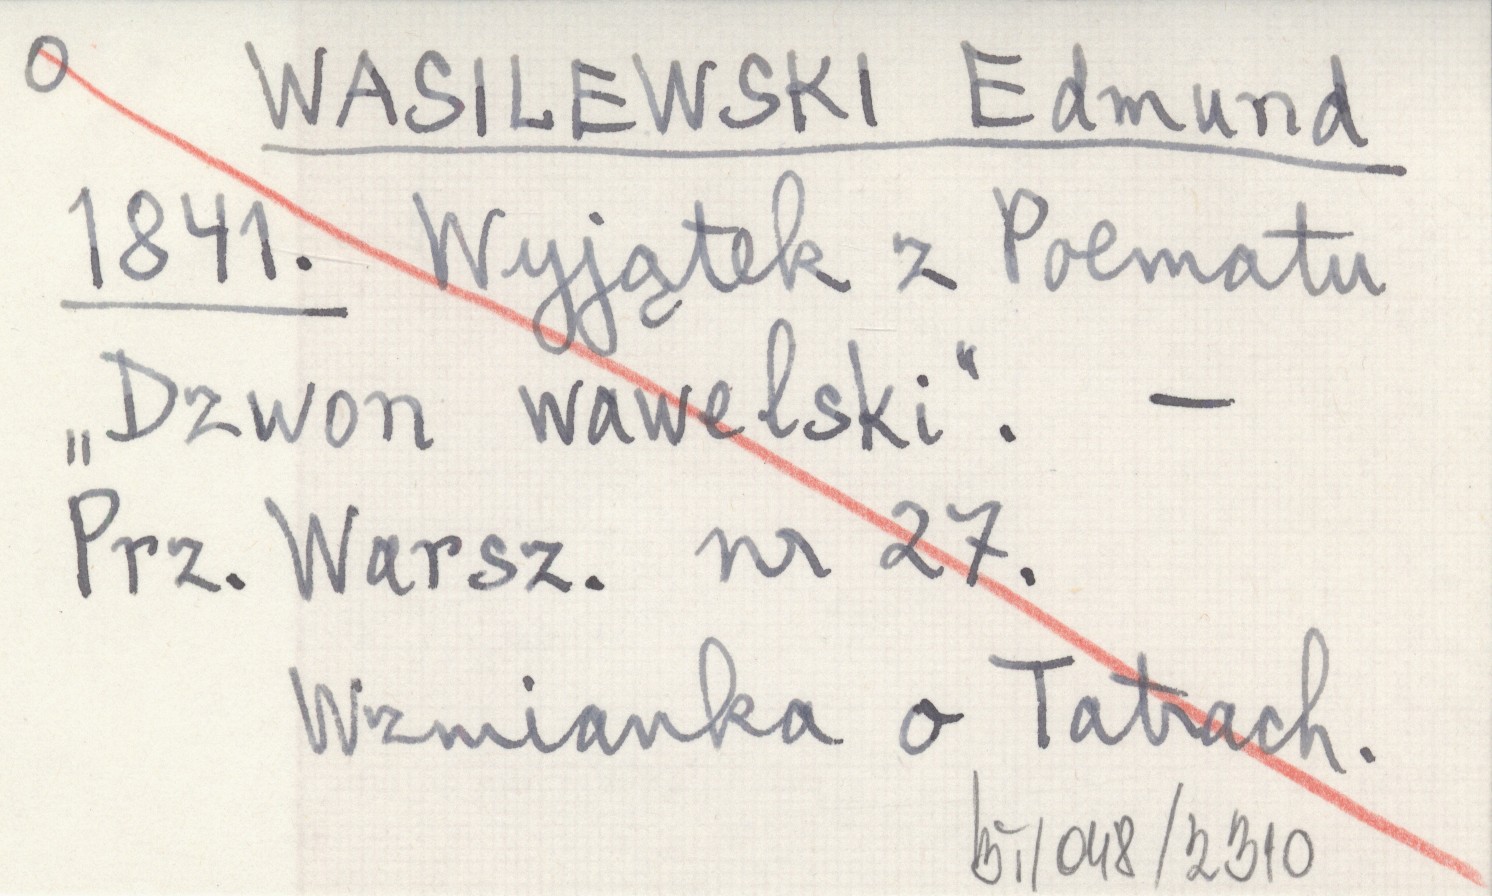 O WASILEWSKI Edmund
1841. Wyjątek z Poematu
„Dzwon wawelski“. —
Prz. Warsz. nr 27.
Wzmianka o Tatrach.
/048/2310